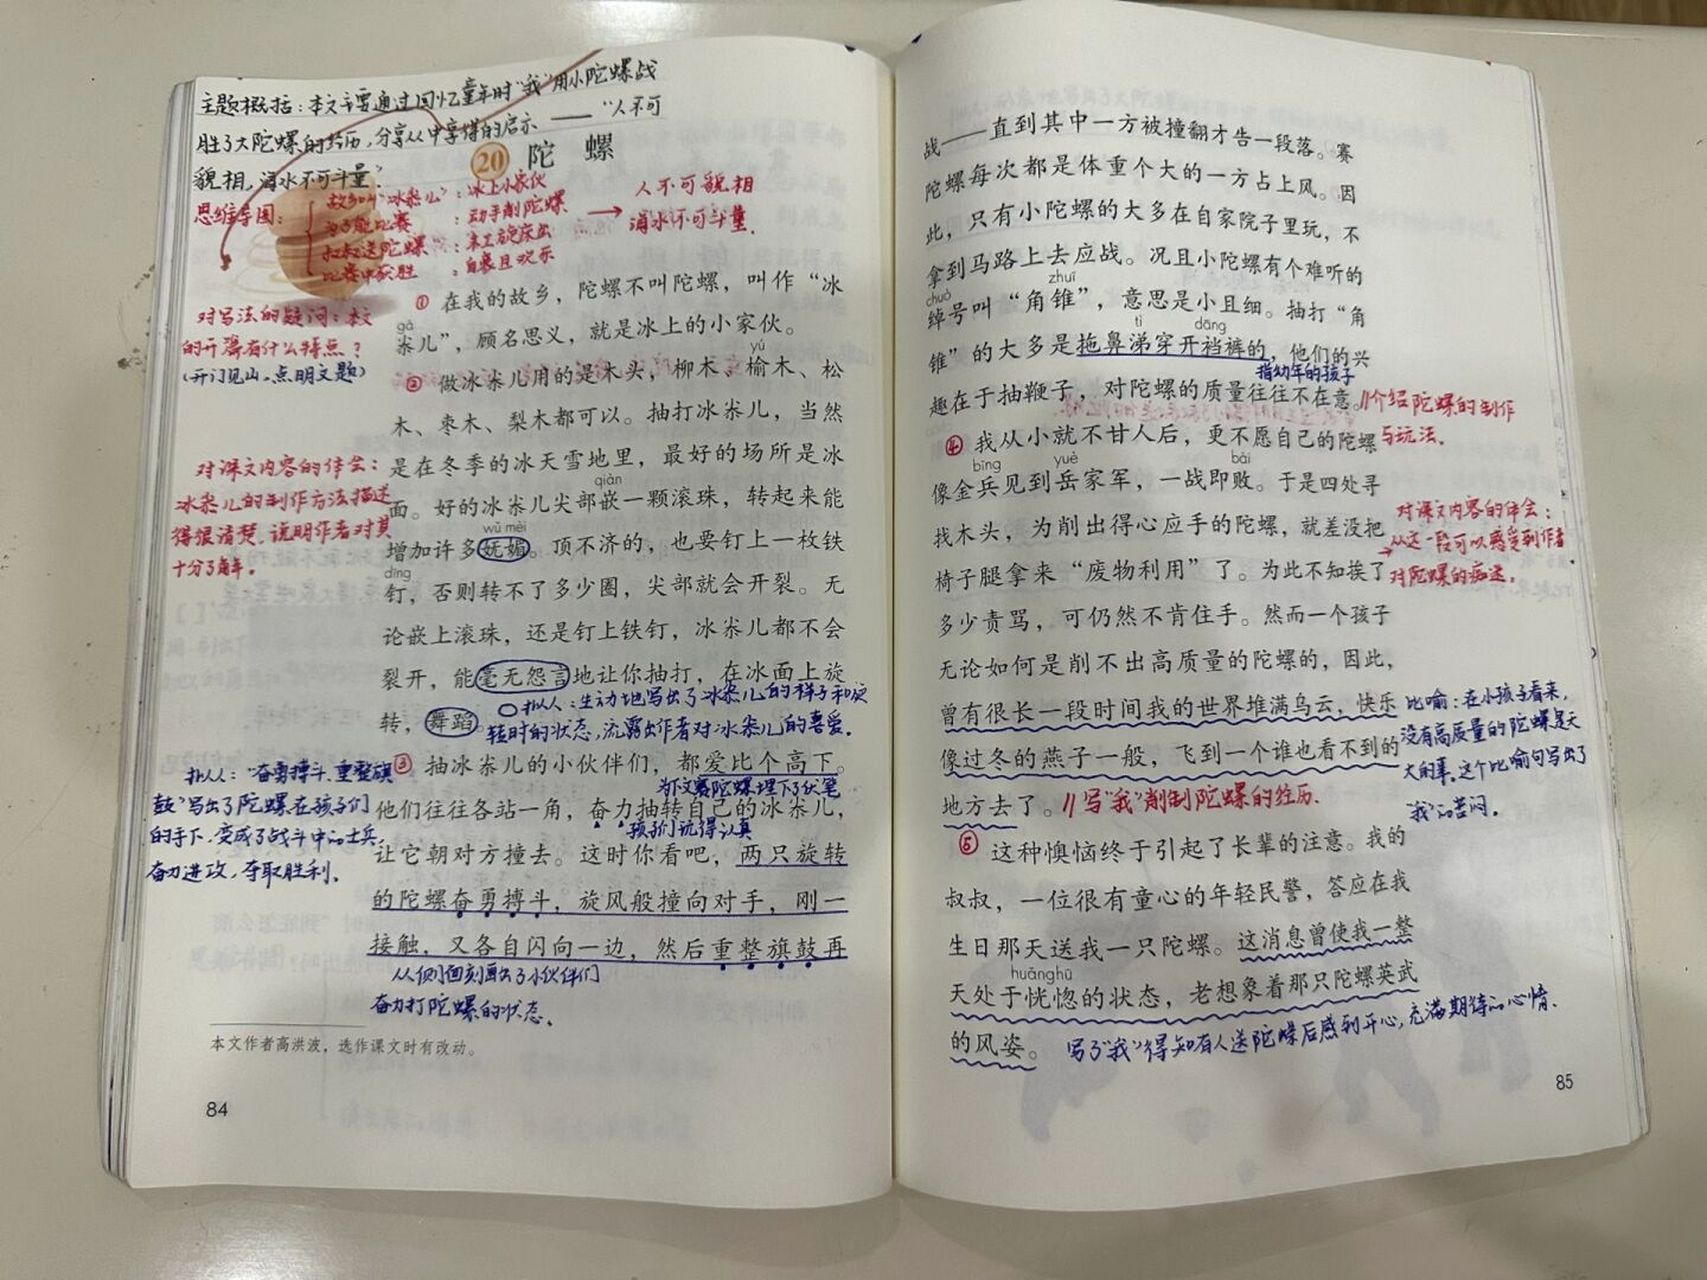 主题概括：本文主要通过回忆童年时“我”用小陀螺战
胜了大陀螺的经历，分享从中享得的启示——“人不可
貌相，海水不可斗量”
20 陀 螺
思维导图：
故乡叫“冰尜儿”：冰上小家伙
为了能比赛：动手削陀螺
叔叔送陀螺：木工旋床出
比赛中获胜：自豪且欢乐
→ 人不可貌相
海水不可斗量。
① 在我的故乡，陀螺不叫陀螺，叫作“冰
gá
尜儿”，顾名思义，就是冰上的小家伙。
对写法的疑问：本文
的开篇有什么特点？
（开门见山。点明文题）
yú
② 做冰尜儿用的是木头，柳木、榆木、松
木、枣木、梨木都可以。抽打冰尜儿，当然
是在冬季的冰天雪地里，最好的场所是冰
qiàn
面。好的冰尜儿尖部嵌一颗滚珠，转起来能
wǔ mèi
增加许多妩媚。顶不济的，也要钉上一枚铁
dīng
钉，否则转不了多少圈，尖部就会开裂。无
论嵌上滚珠，还是钉上铁钉，冰尜儿都不会
裂开，能毫无怨言地让你抽打，在冰面上旋
转，舞蹈。
对课文内容的体会：
冰尜儿的制作方法描述
得很清楚，说明作者对其
十分了解。
拟人：生动地写出了冰尜儿的样子和旋
转时的状态，流露出作者对冰尜儿的喜爱。
③ 抽冰尜儿的小伙伴们，都爱比个高下。
为下文赛陀螺埋下了伏笔
他们往往各站一角，奋力抽转自己的冰尜儿，
孩子们玩得认真
让它朝对方撞去。这时你看吧，两只旋转
的陀螺奋勇搏斗，旋风般撞向对手，刚一
接触，又各自闪向一边，然后重整旗鼓再
拟人：“奋勇搏斗、重整旗
鼓”写出了陀螺在孩子们
的手下，变成了战斗中的士兵，
奋力进攻，夺取胜利。
从侧面刻画出了小伙伴们
奋力打陀螺的状态。
本文作者高洪波，选作课文时有改动。
84
战——直到其中一方被撞翻才告一段落。赛
陀螺每次都是体重个大的一方占上风。因
此，只有小陀螺的大多在自家院子里玩，不
拿到马路上去应战。况且小陀螺有个难听的
chuò zhuī
绰号叫“角锥”，意思是小且细。抽打“角
tì dāng
锥”的大多是拖鼻涕穿开裆裤的，他们的兴
指幼年的孩子
趣在于抽鞭子，对陀螺的质量往往不在意。//介绍陀螺的制作
与玩法。
④ 我从小就不甘人后，更不愿自己的陀螺
bīng yuè bài
像金兵见到岳家军，一战即败。于是四处寻
找木头，为削出得心应手的陀螺，就差没把
椅子腿拿来“废物利用”了。为此不知挨了
多少责骂，可仍然不肯住手。然而一个孩子
无论如何是削不出高质量的陀螺的，因此，
曾有很长一段时间我的世界堆满乌云，快乐
像过冬的燕子一般，飞到一个谁也看不到的
地方去了。//写“我”削制陀螺的经历.
对课文内容的体会：
→从这一段可以感受到作者
对陀螺的痴迷。
比喻：在小孩子看来，
没有高质量的陀螺是天
大的事。这个比喻句写出了
“我”的苦闷。
⑤ 这种懊恼终于引起了长辈的注意。我的
叔叔，一位很有童心的年轻民警，答应在我
生日那天送我一只陀螺。这消息曾使我一整
huǎnghū
天处于恍惚的状态，老想象着那只陀螺英武
的风姿。
写了“我”得知有人送陀螺后感到开心，充满期待的心情.
85